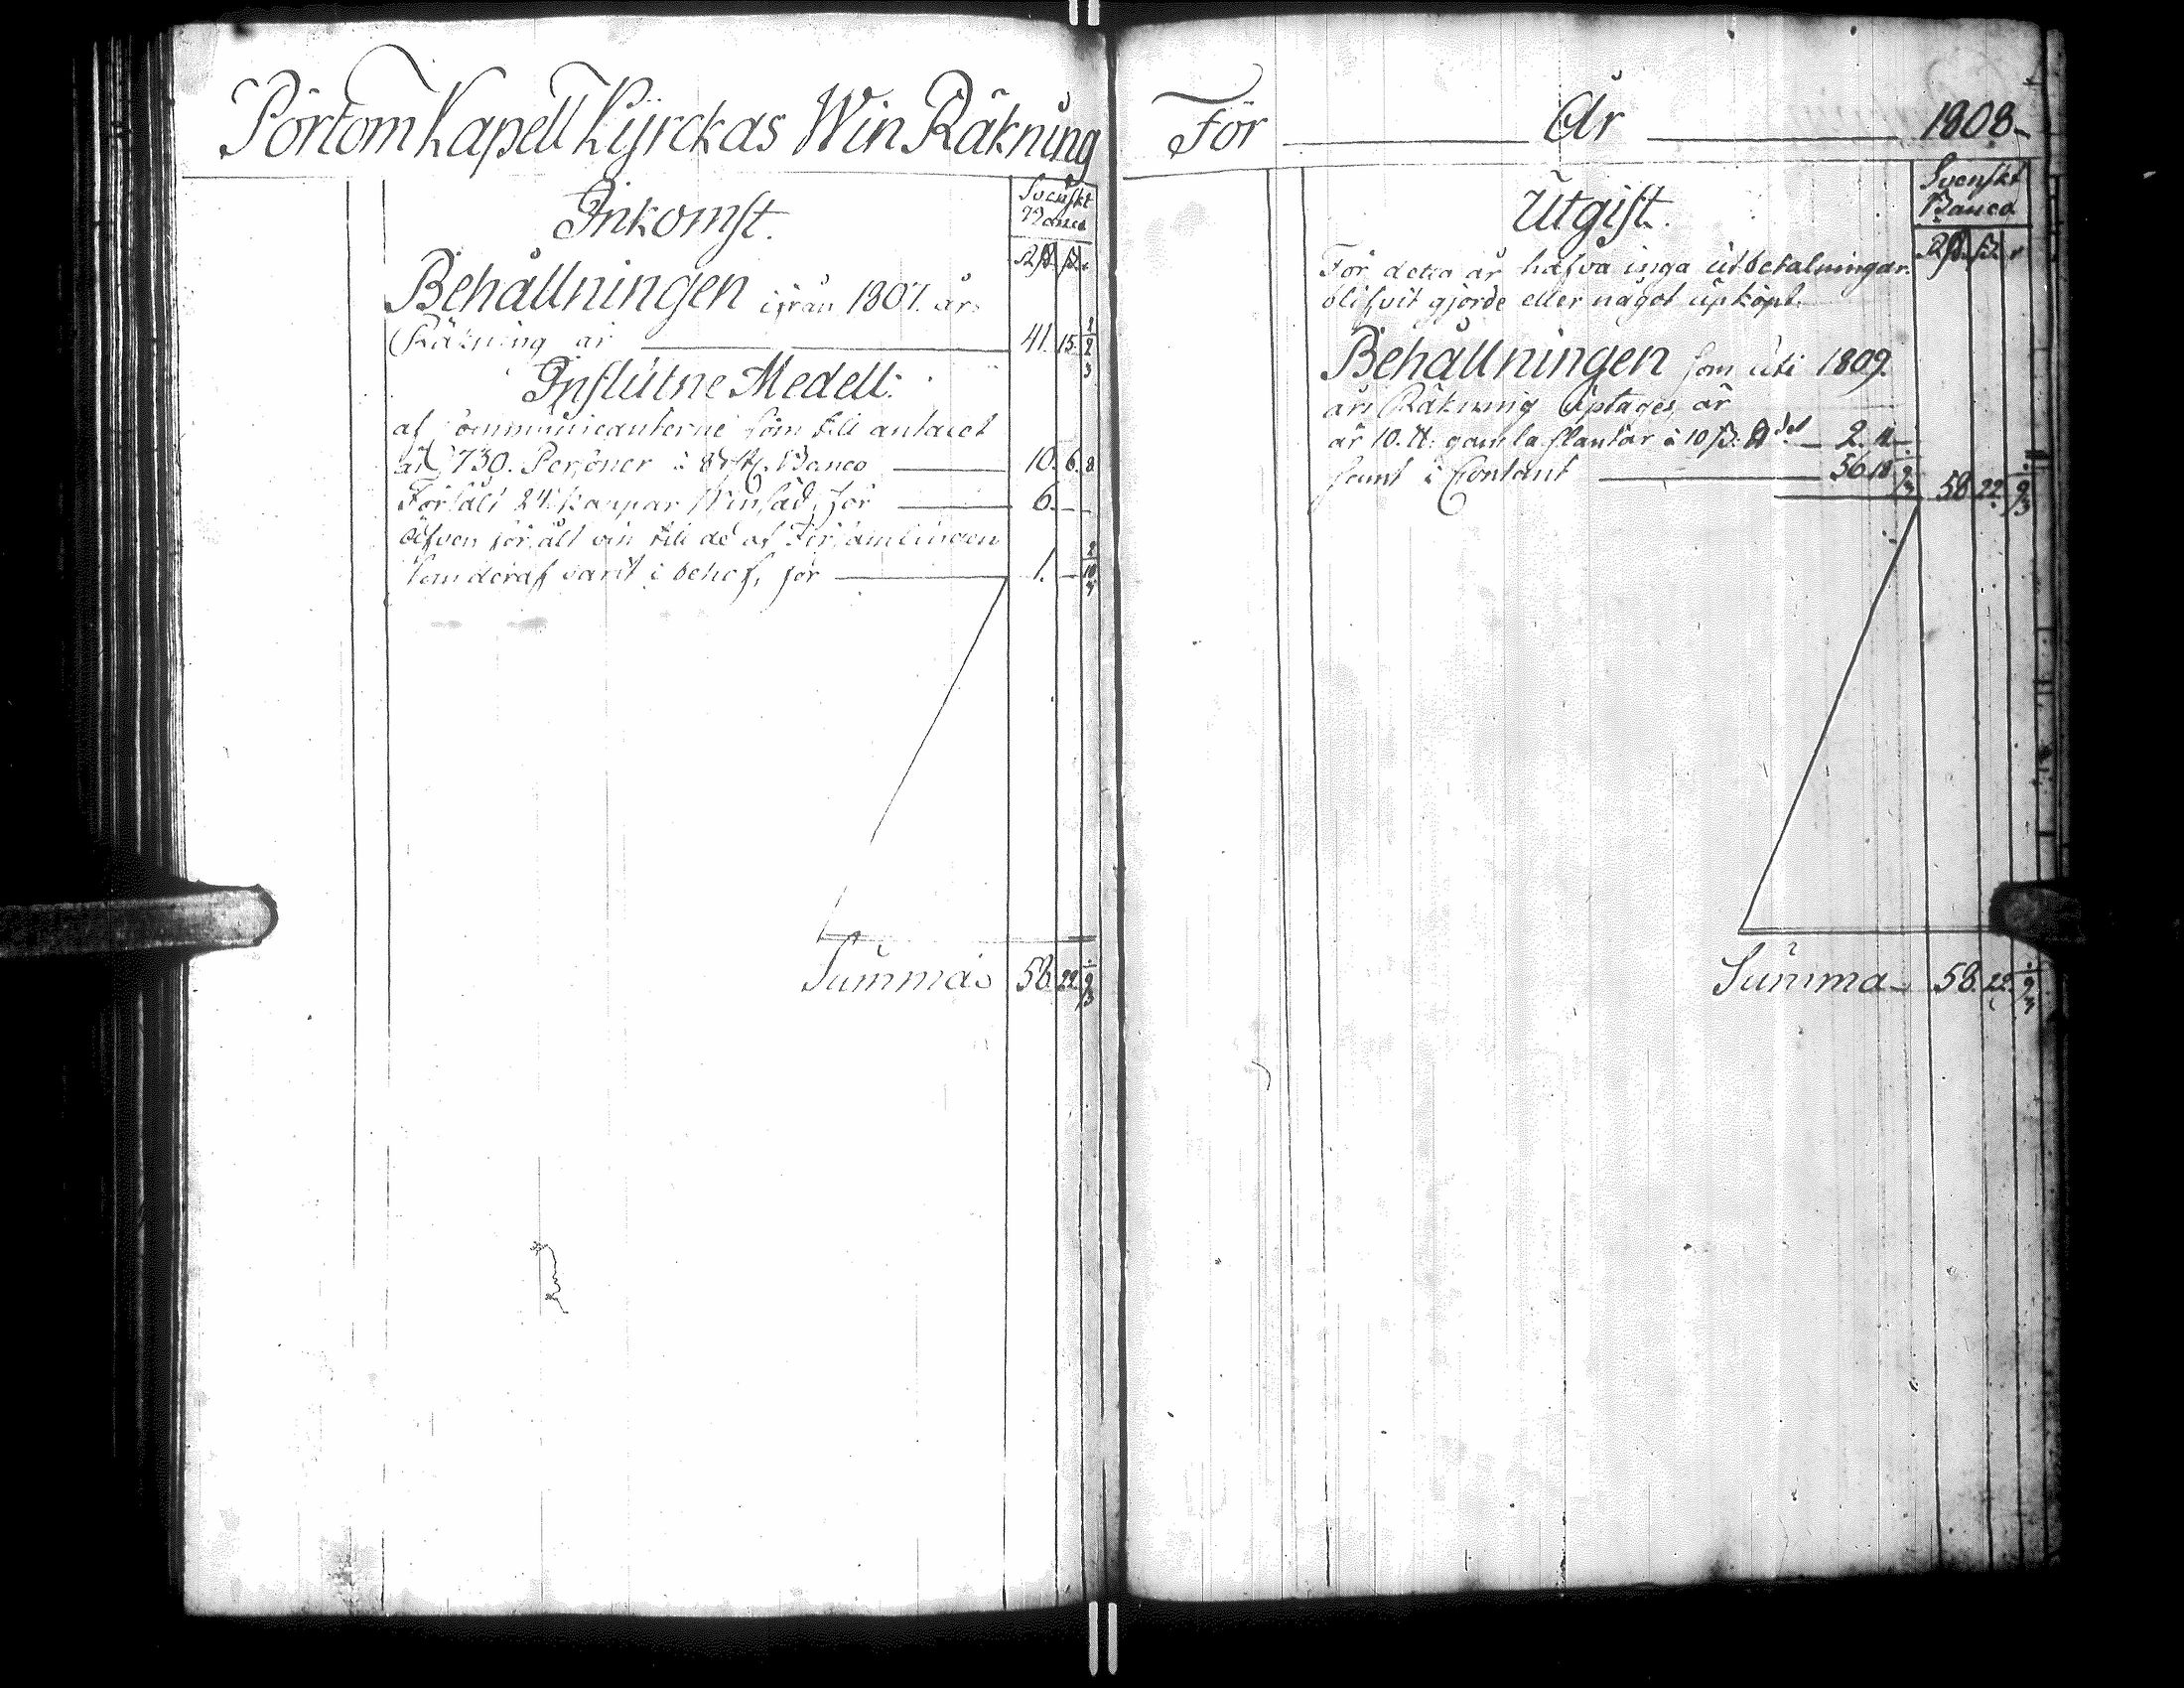 Pörtom Kapell Kyrckas Win Räkning
Inkomst.
Svenskt
Banco
Rd. ß. r
Behållningen ifrån 1807. års
Räkning är 41. 15.
Inflütne Medell:
af Communicanterne som till antalet
är 730. Personer à 8 rst. Banco 10. 6. 8
Försålt 24. kappar Winsäd, för 6. — —
äfven försålt vin till de af Församlingen
som deraf varit i behof, för 1. —
Summa 58. 22.
För År 1808
Utgift.
Svenskt
Banco
Rd. ß. r
För detta år hafva inga utbetalningar
blifvit gjorde eller något üpköpt.
Behållningen som uti 1809.
års Räkning üptages, är
är 10. gamla flaskor à 10 ß. 2.
samt i Contant 56. 18 58. 22.
Summa 58. 22.